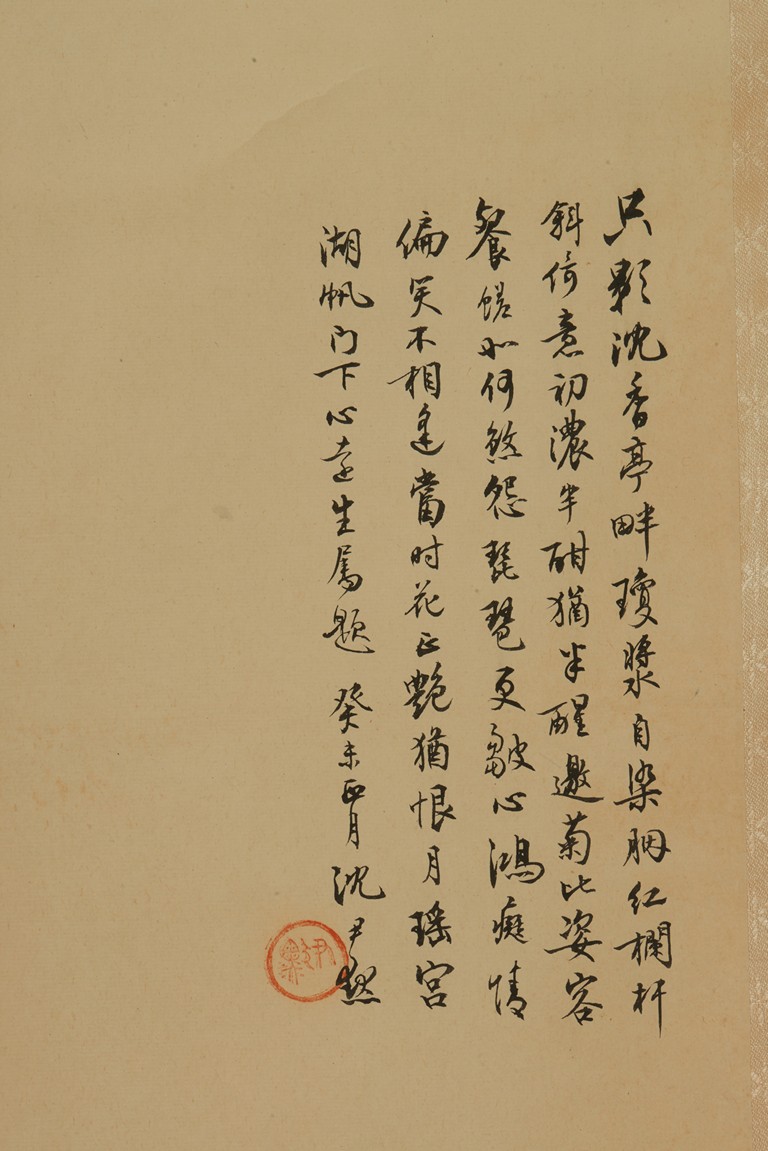 只影沈香亭畔瓊漿自染胭红欄杆
斜倚意初濃半酣猶半醒邀菊比姿容
餐蜡如何煞怨琵琶更皺心鴻癡情
偏笑不相逢當时花正艷猶恨月瑶宫
湖帆门下心遠生属题 癸未正月 沈尹默
尹默